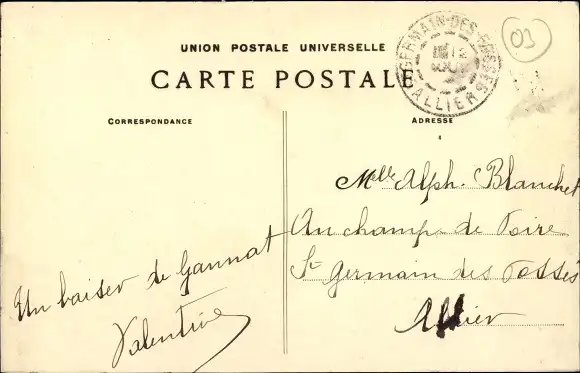 UNION POSTALE UNIVERSELLE
CARTE POSTALE
ST GERMAIN-DES-FOSSÉS
ALLIER
03
CORRESPONDANCE
ADRESSE
Un baiser de Gannat
Valentine
Melle Alph. Blanchet
Au champ de Foire
St Germain des Fossés
Allier